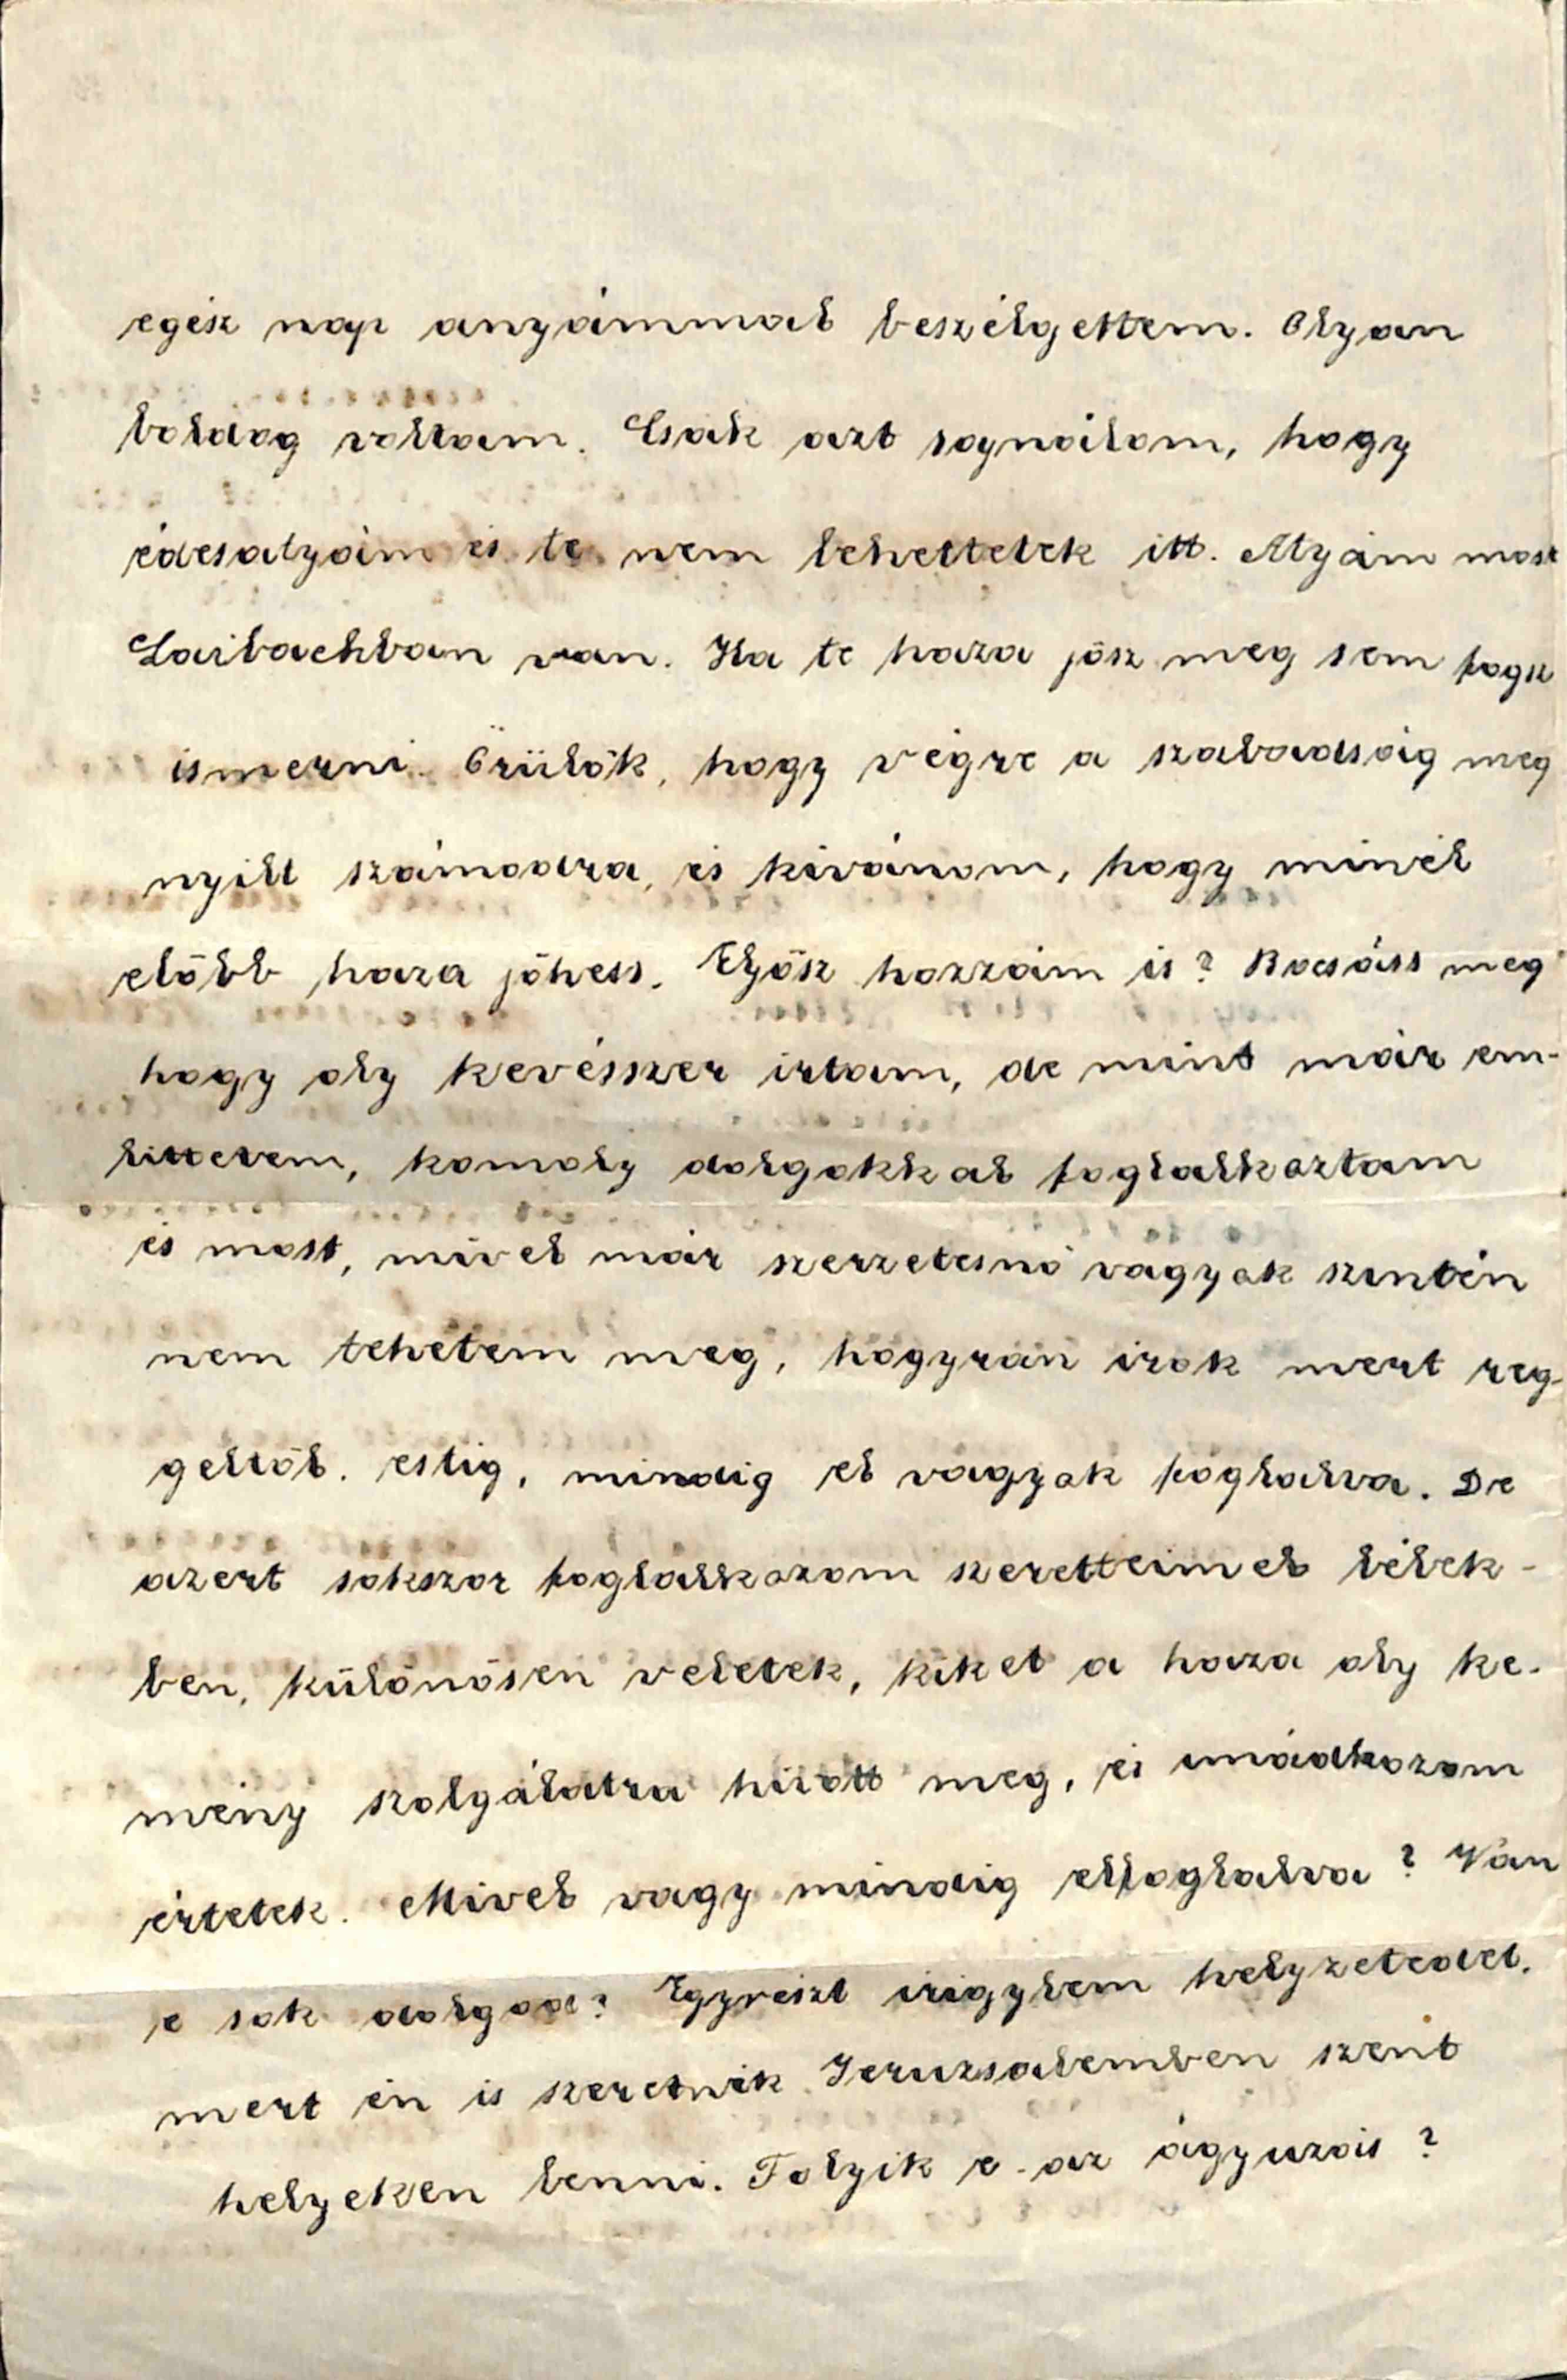 egész nap anyámmal beszélgettem. Olyan
boldog voltam. Csak azt sajnálom, hogy
édesatyám és te nem lehettetek itt. Atyám most
Laibachban van. Ha te haza jösz meg sem fogsz
ismerni. Örülök, hogy végre a szabadság meg
nyilt számodra, és kivánom, hogy minél
előbb haza jöhess. Eljösz hozzám is? Bocsáss meg
hogy oly kevésszer irtam, de mint már em-
littetem, komoly dolgokkal foglalkoztam
és most, mivel már szerzetesnő vagyok szintén
nem tehetem meg, hogy irok mert reg-
geltől. estig, mindig el vagyok foglalva. De
azert sokszor foglalkozom szeretteimel lélek-
ben, különösen veletek, kiket a haza oly ke-
mény szolgálatra hivott meg, és imádkozom
értetek. Mivel vagy mindig elfoglalva? Van
e sok dolgod? Egyrészt irigylem helyzetedet,
mert én is szeretnék Jeruzsalemben szent
helyeken lenni. Folyik e-az ágyuzás?